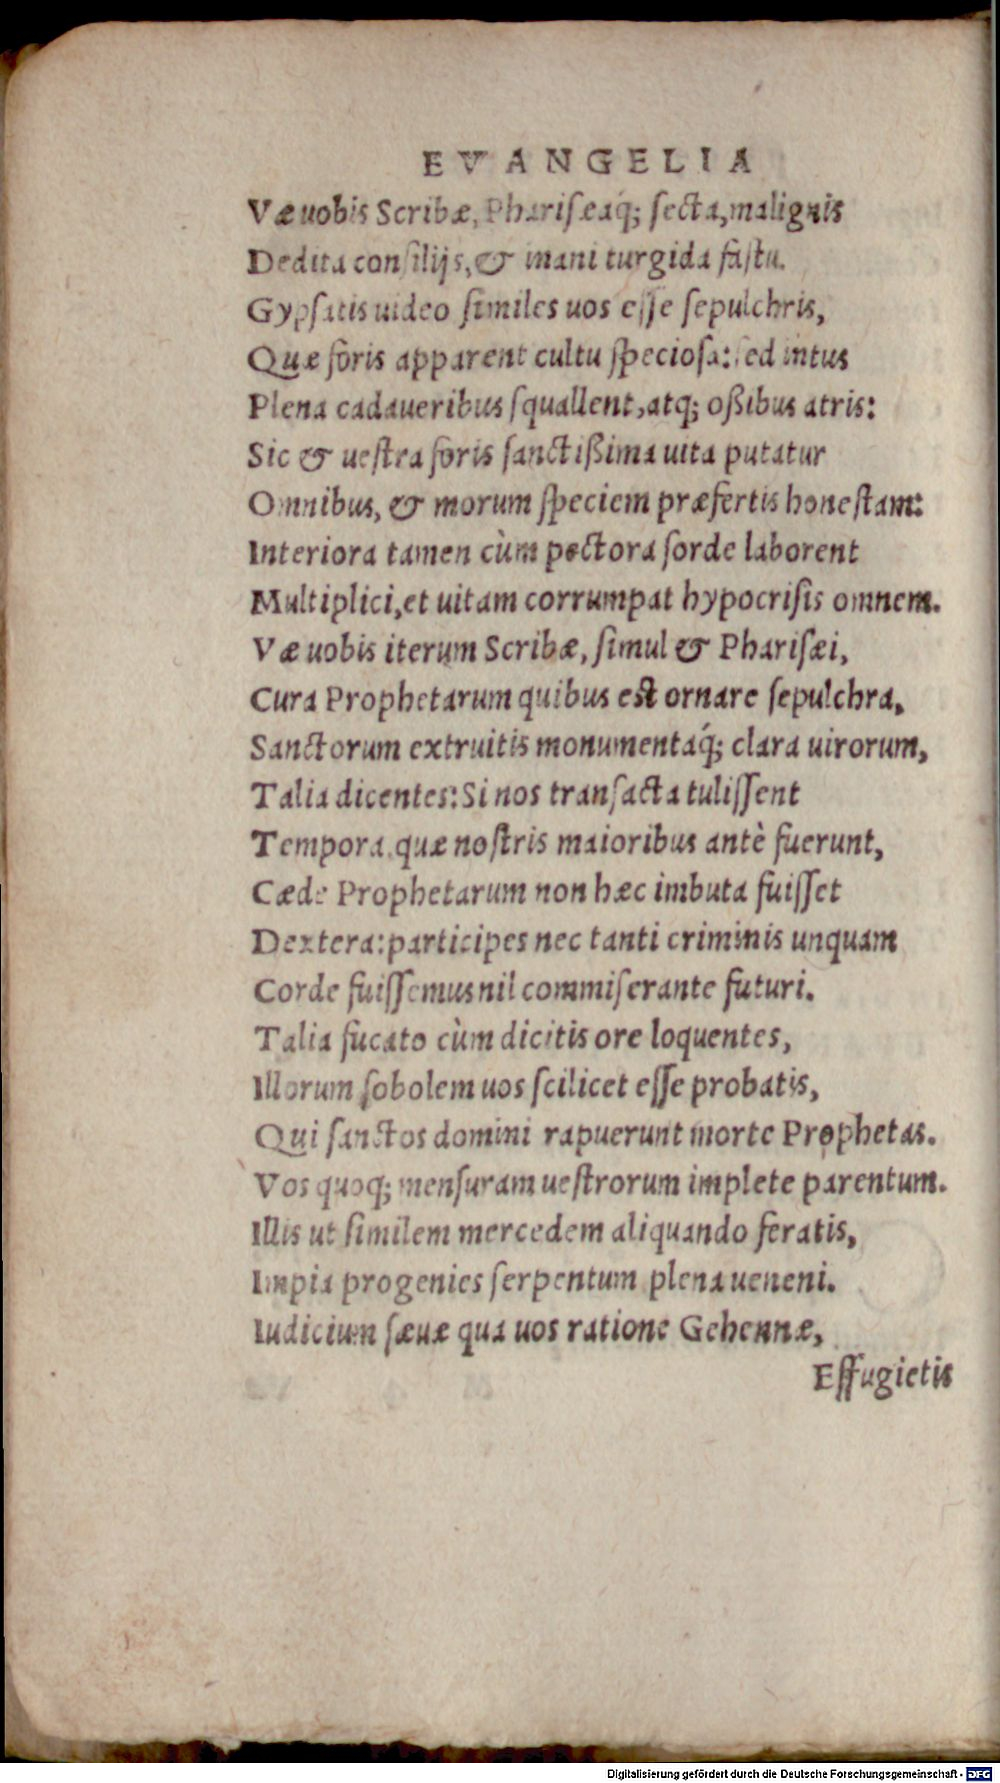 EVANGELIA
Væ uobis Scribæ, Phariſeaq́; ſecta, malignis
Dedita conſilijs, & inani turgida faſtu.
Gypſatis uideo ſimiles uos eſſe ſepulchris,
Quæ foris apparent cultu ſpecioſa: ſed intus
Plena cadaueribus ſquallent, atq; oßibus atris:
Sic & ueſtra foris ſanctißima uita putatur
Omnibus, & morum ſpeciem præfertis honeſtam:
Interiora tamen cùm pectora ſorde laborent
Multiplici, et uitam corrumpat hypocriſis omnem.
Væ uobis iterum Scribæ, ſimul & Phariſæi,
Cura Prophetarum quibus est ornare ſepulchra,
Sanctorum extruitis monumentaq́; clara uirorum,
Talia dicentes: Si nos tranſacta tuliſſent
Tempora, quæ noſtris maioribus antè fuerunt,
Cæde Prophetarum non hæc imbuta fuiſſet
Dextera: participes nec tanti criminis unquam
Corde fuiſſemus nil commiſerante futuri.
Talia fucato cùm dicitis ore loquentes,
Illorum ſobolem uos ſcilicet eſſe probatis,
Qui ſanctos domini rapuerunt morte Prophetas.
Vos quoq; menſuram ueſtrorum implete parentum.
Illis ut ſimilem mercedem aliquando feratis,
Impia progenies ſerpentum plena ueneni.
Iudicium ſæuæ qua uos ratione Gehennæ,
Effugietis
Digitalisierung gefördert durch die Deutsche Forschungsgemeinschaft - DFG